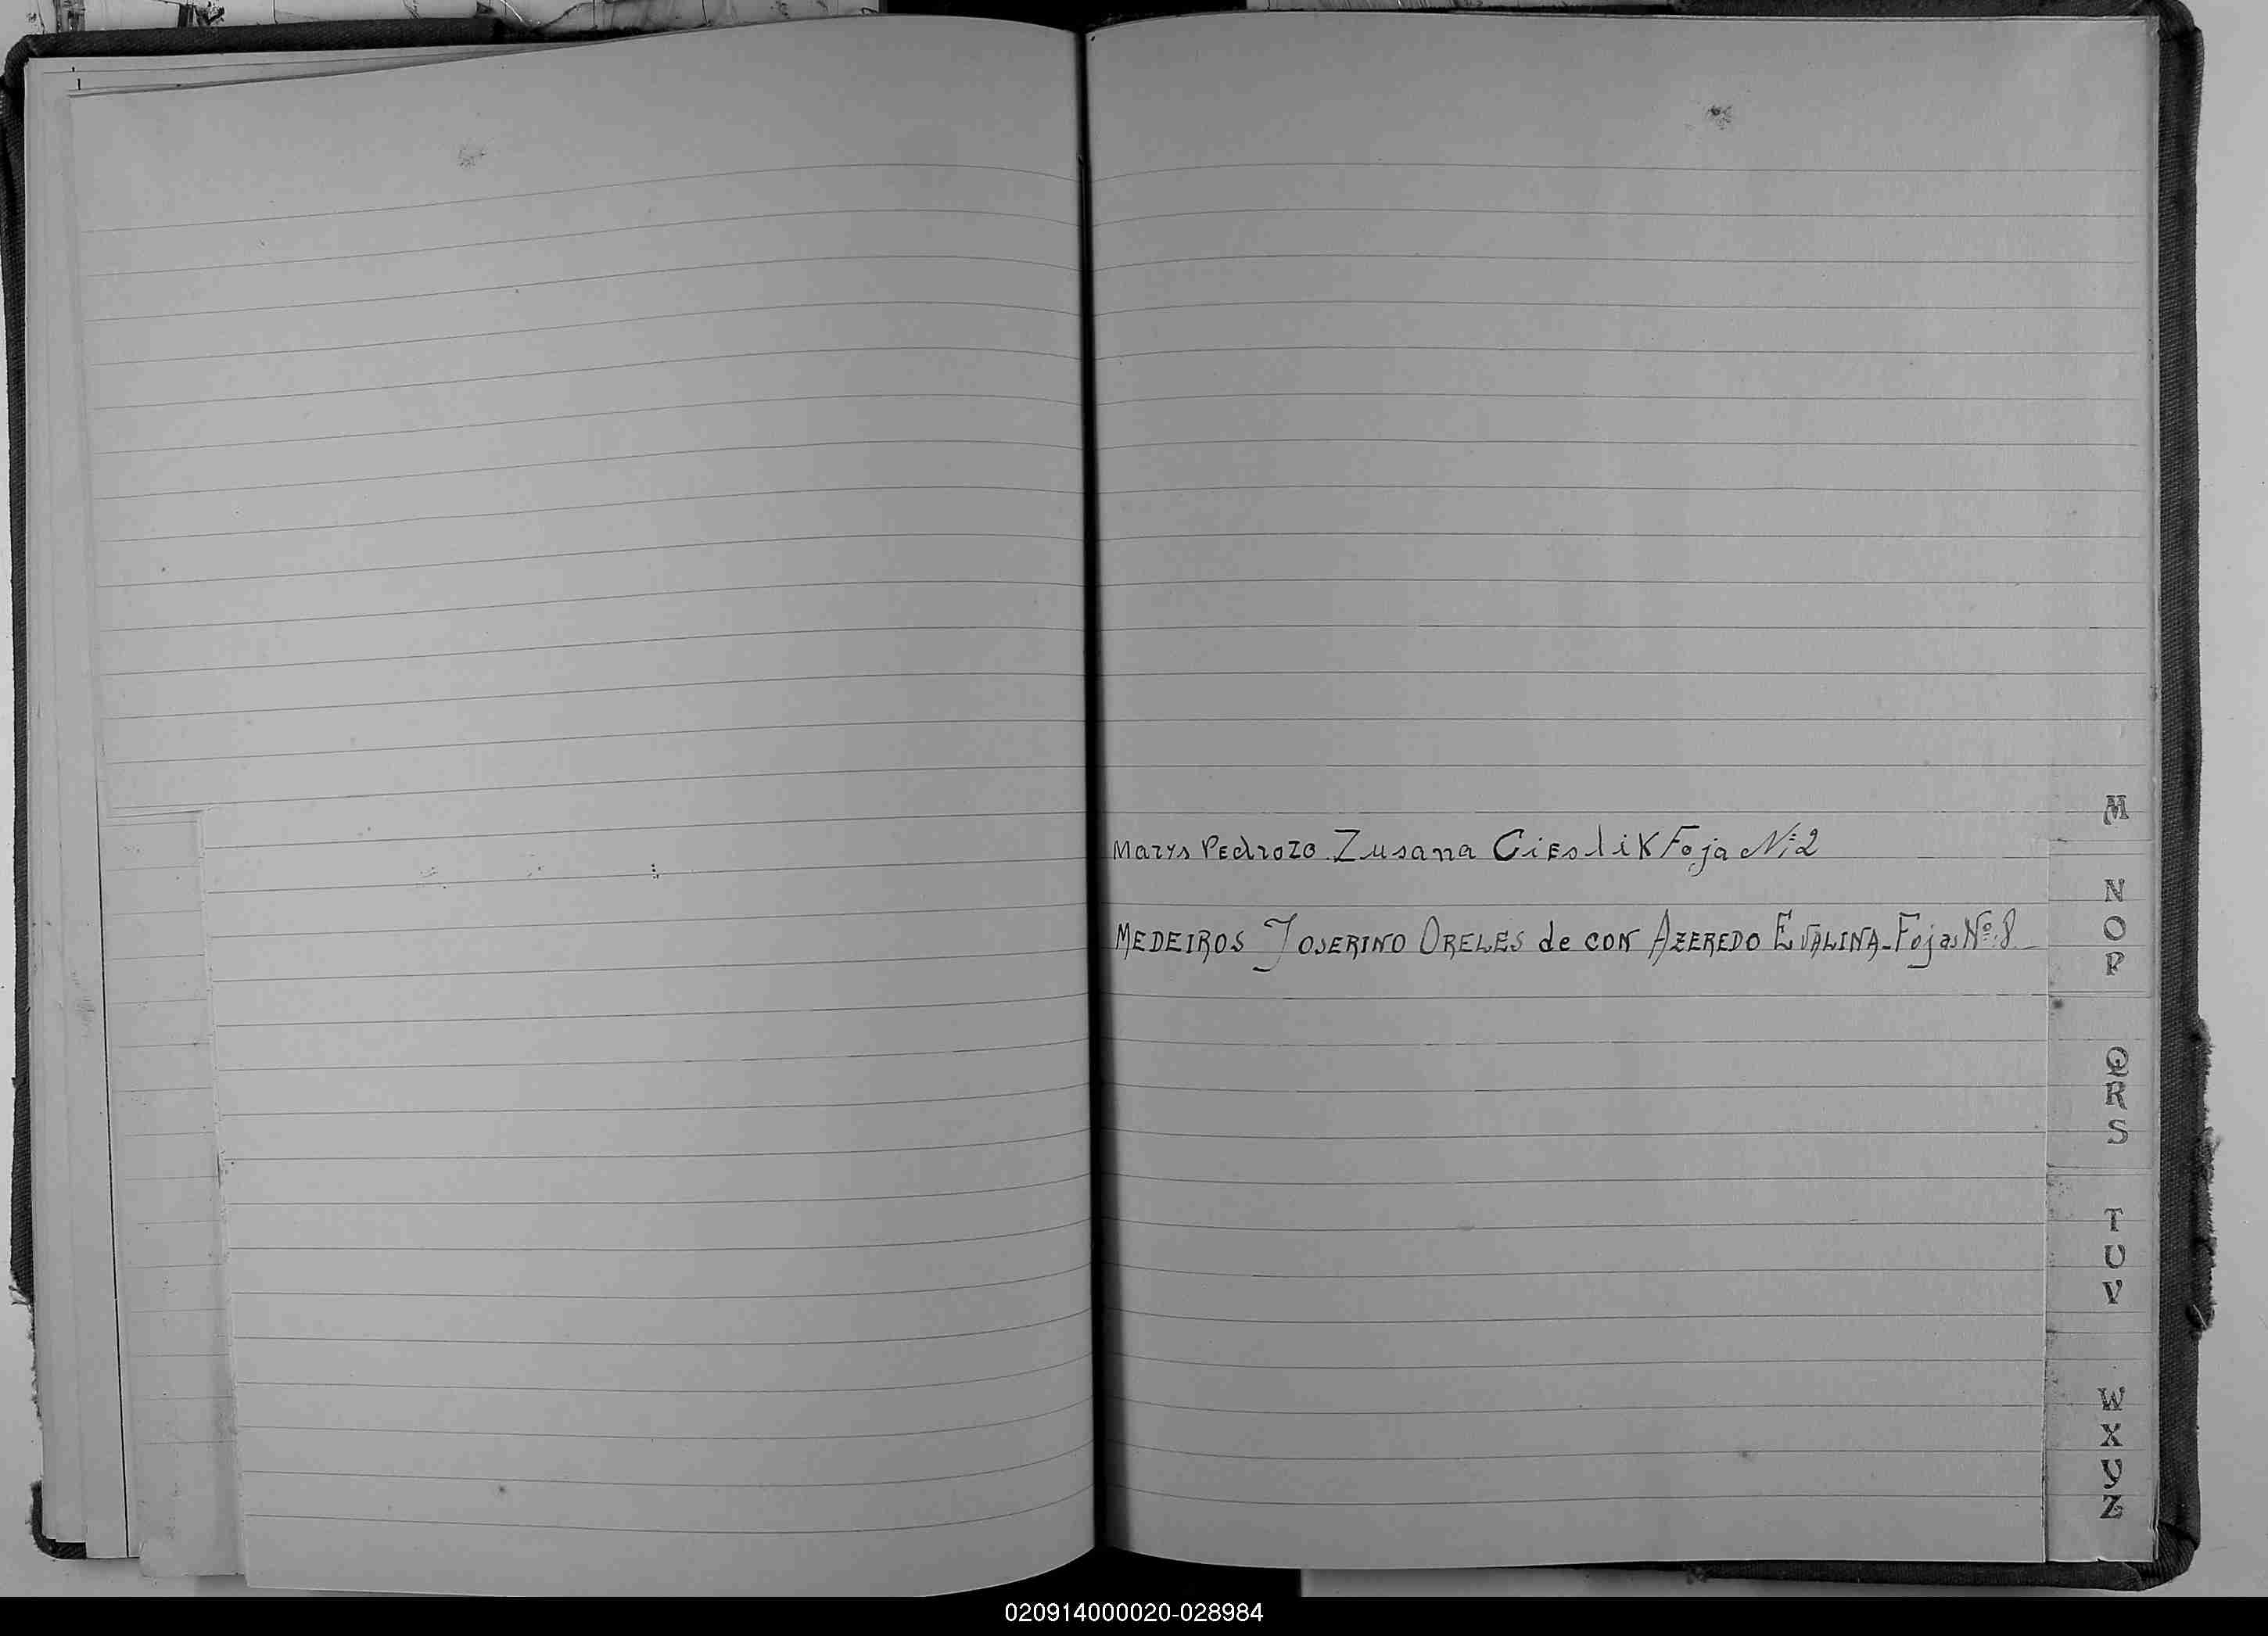 M
Marys Pedrozo Zusana Cieslik Foja Nº 2
N
MEDEIROS JOSERINO ORELES de CON AZEREDO EVALINA - Fojas Nº 8
O
P
Q
R
S
T
U
V
W
X
Y
Z
020914000020-028984